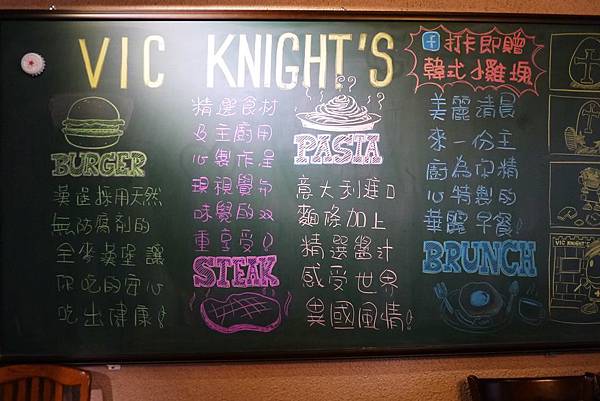 VIC KNIGHT'S
打卡即贈
韓式小雞塊
BURGER
漢堡採用天然
無防腐劑的
全麥漢堡讓
你吃的安心
吃出健康!
精選食材
及主廚用
心製作呈
現視覺和
味覺的双
重享受!
STEAK
PASTA
意大利進口
麵條加上
精選醬汁
感受世界
異國風情!
美麗清晨
來一份主
廚為你精
心特製的
華麗早餐!
BRUNCH
VIC KNIGHT'S